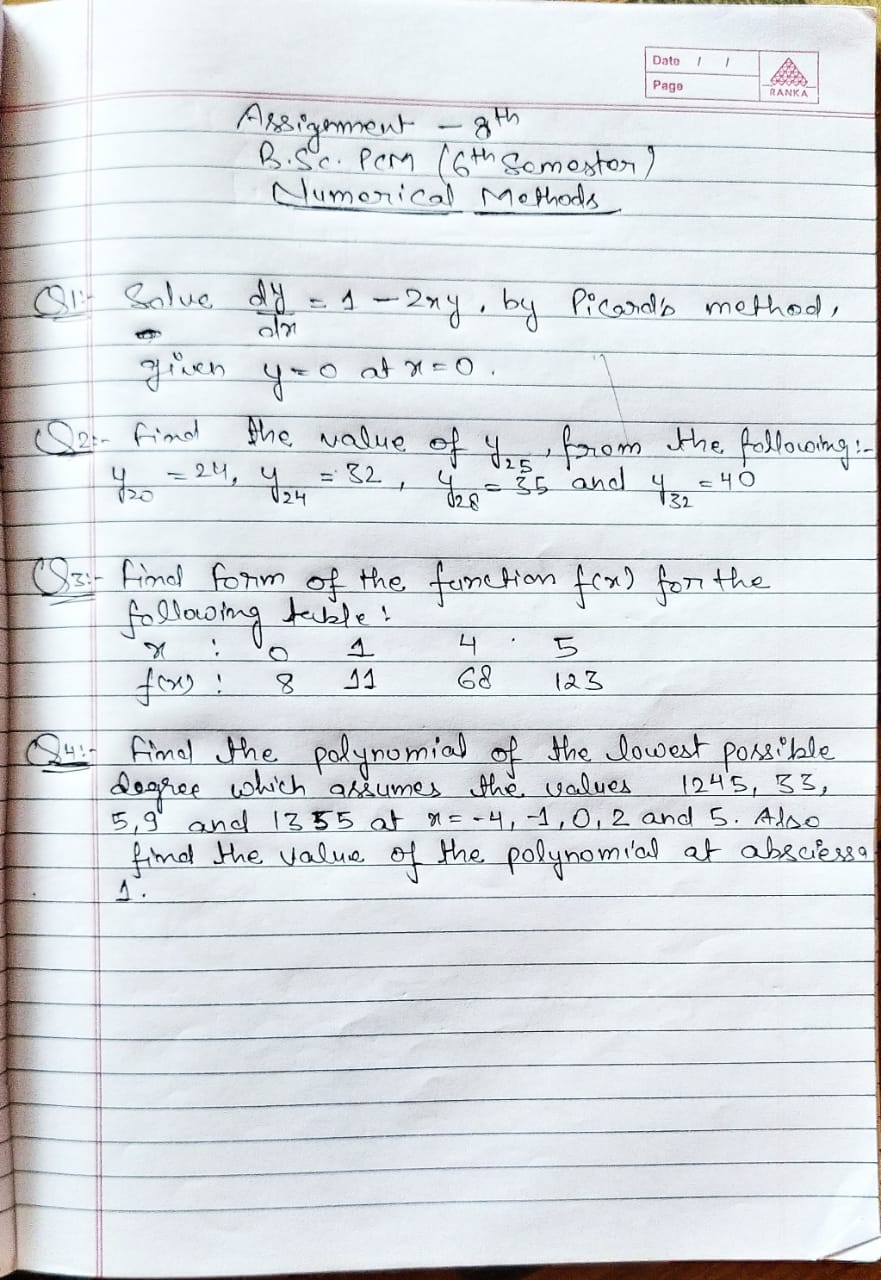 Date / /
Page
RANKA
Assignment - 8th
B.Sc. PCM (6th Semester)
Numerical Methods
Q1:- Solve dy/dx = 1 - 2xy, by Picard's method,
given y=0 at x=0.
Q2:- Find the value of y₂₅, from the following:-
y₂₀ = 24, y₂₄ = 32, y₂₈ = 35 and y₃₂ = 40
Q3:- Find form of the function f(x) for the
following table:
x : 0 1 4 5
f(x) : 8 11 68 123
Q4:- Find the polynomial of the lowest possible
degree which assumes the values 1245, 33,
5, 9 and 1355 at x = -4, -1, 0, 2 and 5. Also
find the value of the polynomial at absciessa
1.